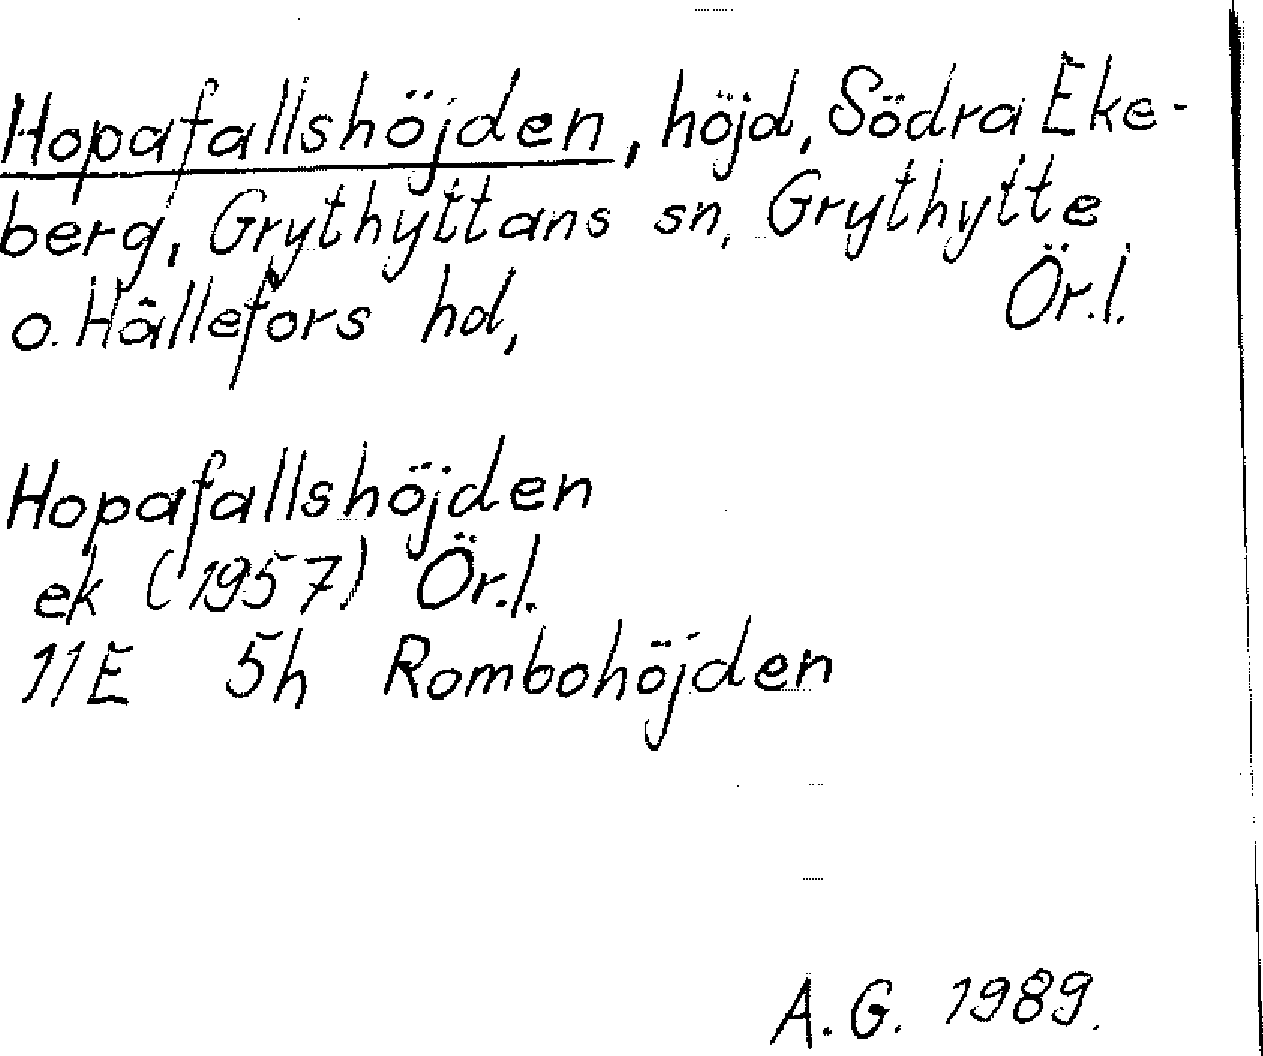 Hopafallshöjden, höjd, Södra Eke-
berg, Grythyttans sn, Grythytte
o. Hällefors hd, Ör.l.
Hopafallshöjden
ek (1957) Ör.l.
11E 5h Rombohöjden
A.G. 1989.